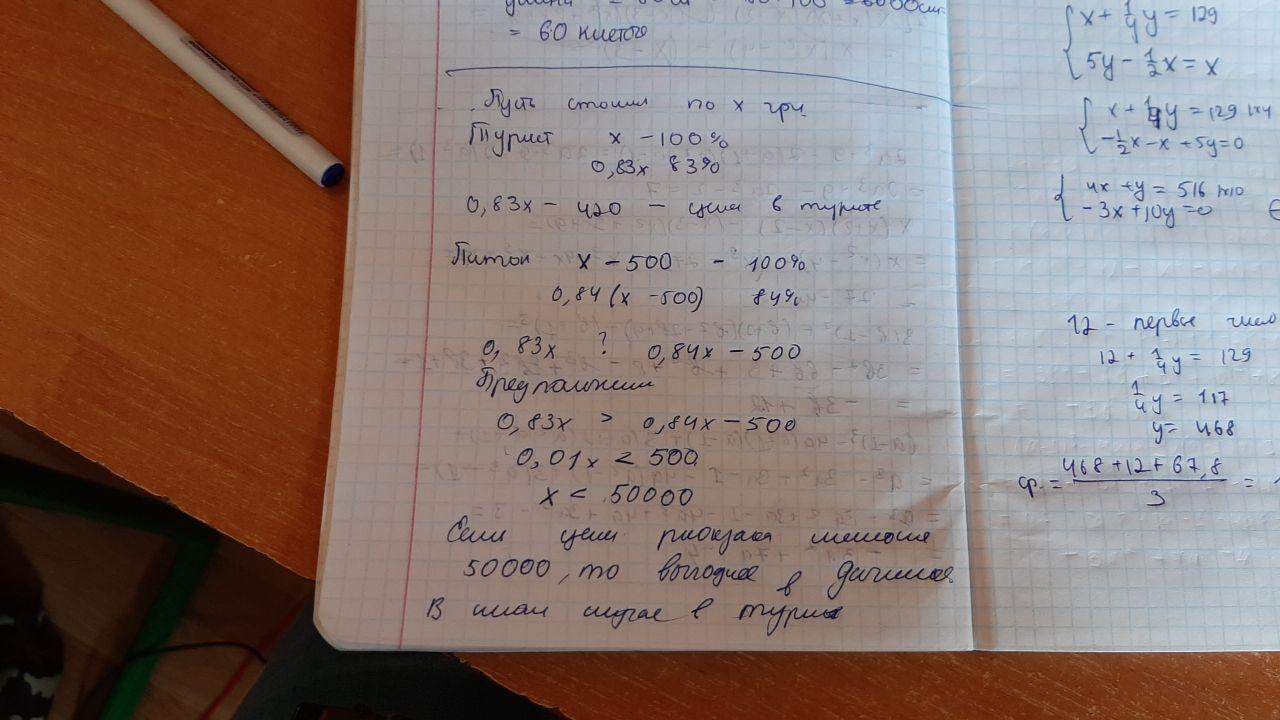 = 60 кистого
Пусть стоил по х грн.
Турист х - 100%
0,83х 83%
0,83х - 420 - цена в туристе
Питон х - 500 - 100%
0,84 (х - 500) 84%
0,83х ? 0,84х - 500
Предположим
0,83х > 0,84х - 500
0,01х < 500
х < 50000
Если цена рюкзака меньше
50000, то выгоднее в
В ином случае в турист
{ x + 1/4 y = 129
5y - 1/2 x = x
{ x + 1/4 y = 129 |×4
-1/2 x - x + 5y = 0
{ 4x + y = 516 |×10
-3x + 10y = 0
12 - первое число
12 + 1/4 y = 129
1/4 y = 117
y = 468
ср. = (468 + 12 + 67,8) / 3 =